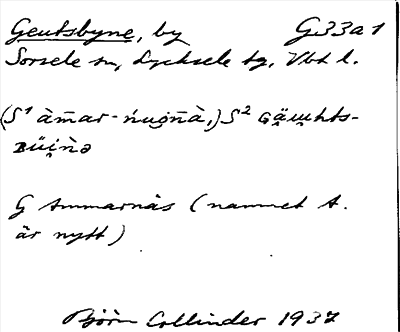 Geutsbyne, by G33a1
Sorsele sn, Lycksele tg, Vbt l.
(S¹ àm̄ar-ńugn̄à,) S² Gä̯w̥hts-
Büi̯ǹə
G Ammarnäs (namnet A.
är nytt)
Björn Collinder 1937